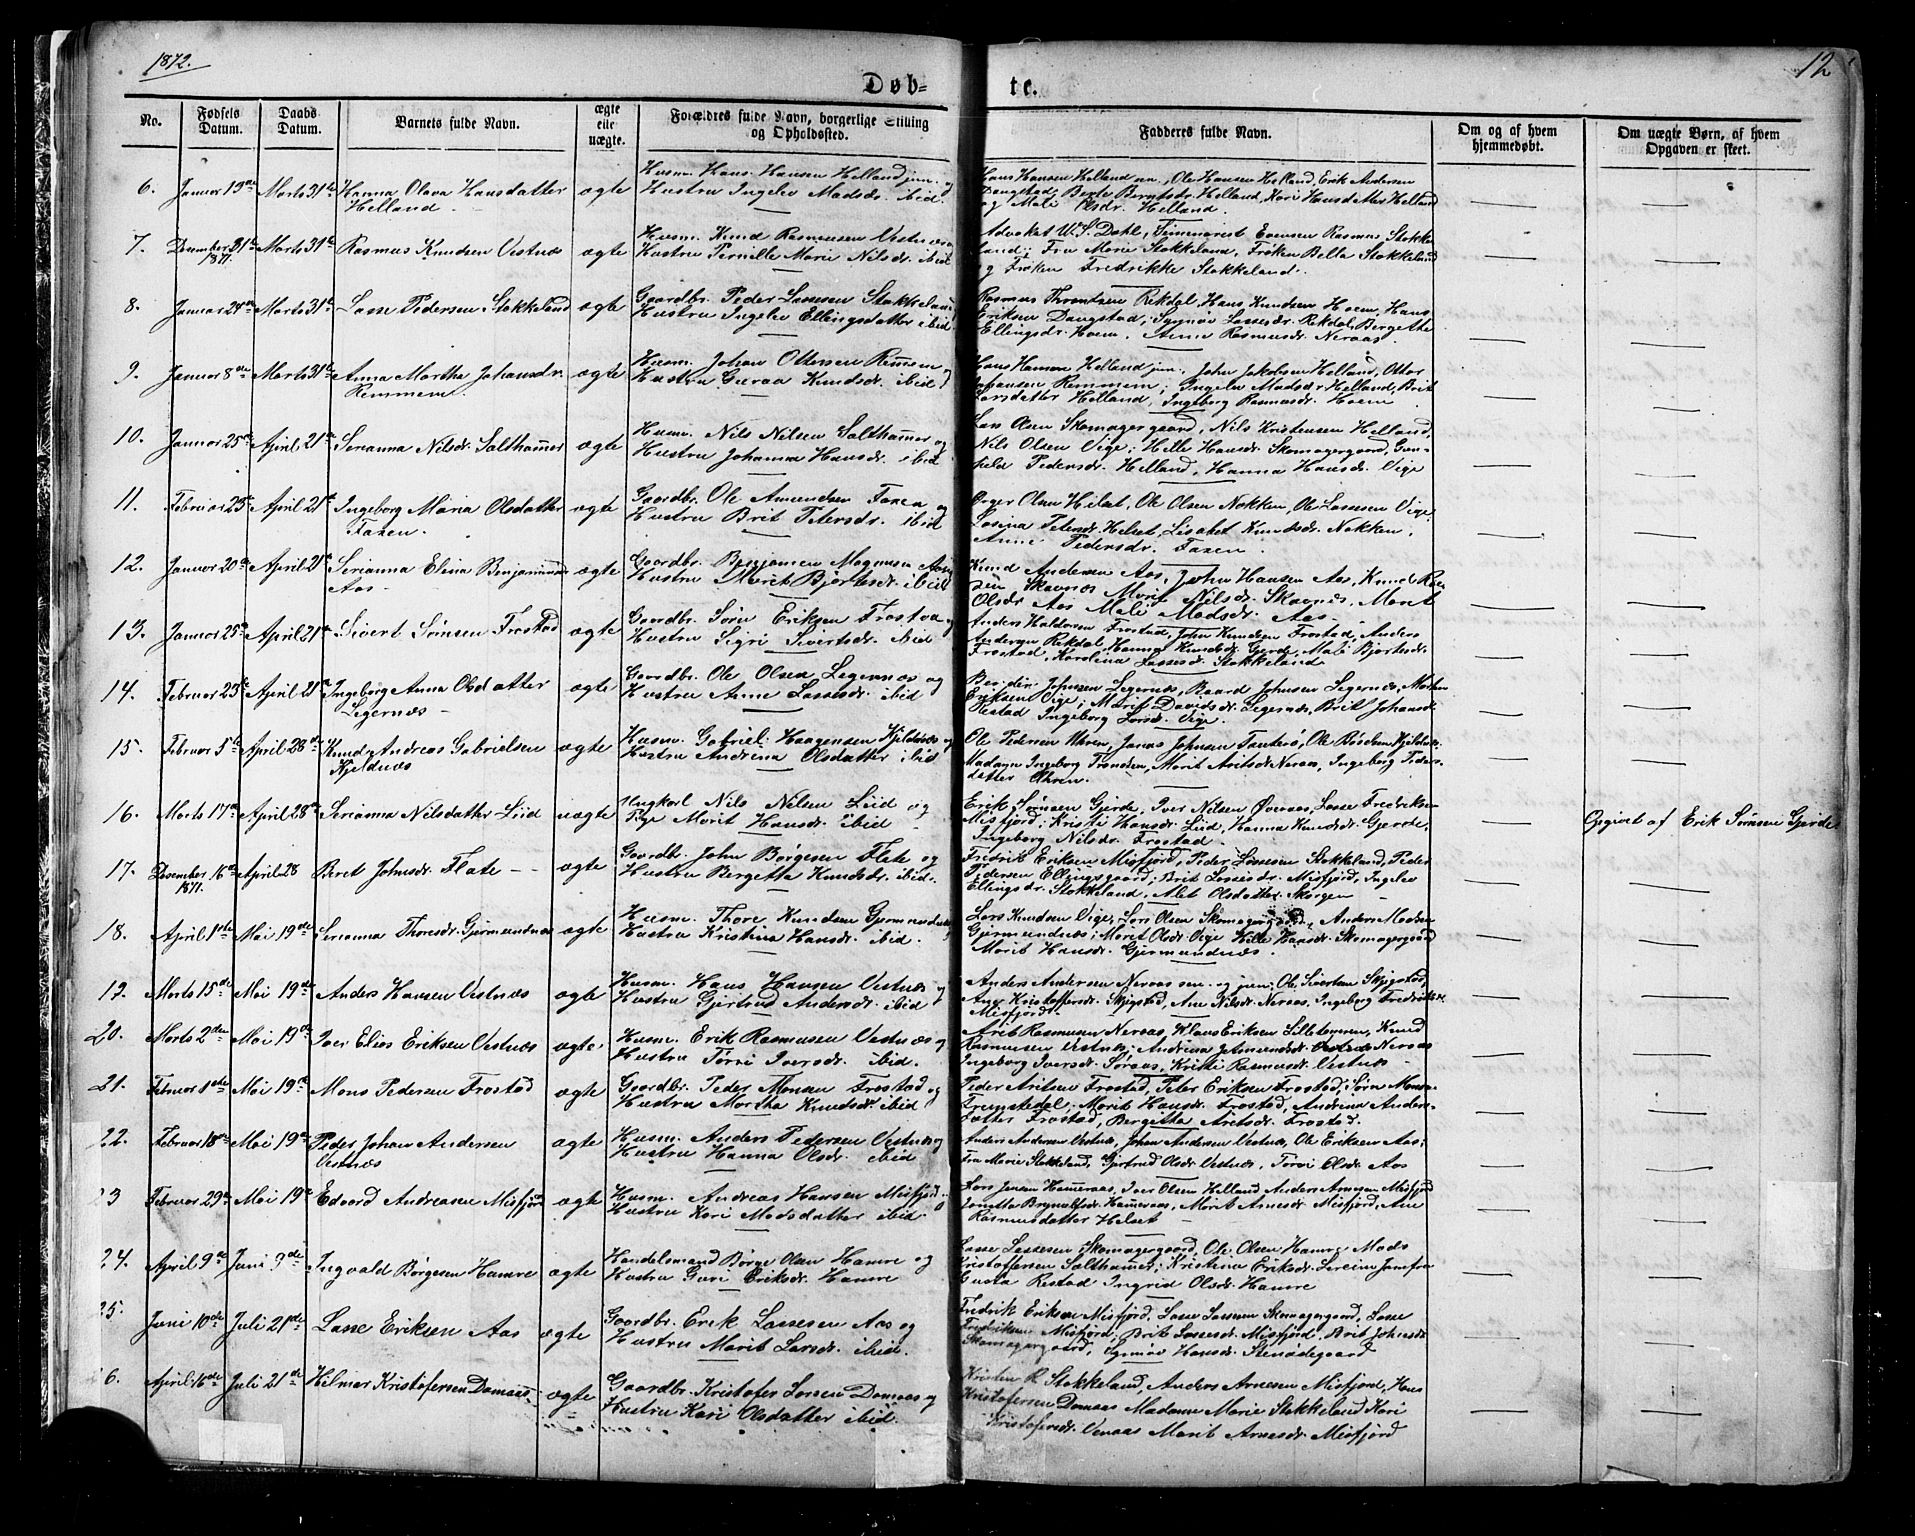 1872.
12
Døb=
te.
No.
Fødsels Datum.
Daabs Datum.
Barnets fulde Navn.
ægte elle uægte.
Forældres fulde Navn, borgerlige Stilling og Opholdssted.
Fadderes fulde Navn.
Om og af hvem hjemmedøbt.
Om uægte Børn, af hvem Opgaven er skeet.
6. Januar 19de Marts 31te Hanna Olava Hansdatter Helland ægte
Husm. Hans Hansen Helland jun. og
Hustru Ingelev Madsdr. ibid.
Hans Hansen Helland Ole Hansen Helland, Erik Andersen
Daugstad, Berte Berntsdr. Helland, Kari Hansdatter Helland
og Mali Olsdr. Helland.
7. December 31te 1871. Marts 31te Rasmus Knudsen Vestnæs ægte
Husm. Knud Rasmussen Vestnæs og
Hustru Pernille Marie Nilsdr. ibid
Advokat W. S. Dahl, Rasmus Stokke-
land; Fru Marie Stokkeland, Frøken Bella Stokkeland
og Frøken Fredrikke Stokkeland.
8. Januar 24de Marts 31te Lasse Pedersen Stokkeland ægte
Gaardbr. Peder Lassesen Stokkeland
Hustru Ingelev Ellingsdatter ibid
Rasmus Throndsen Rekdal, Hans Knudsen Hoem, Hans
Eriksen Daugstad; Synnøv Lassesdr. Rekdal, Bergethe
Ellingsdr. Hoem, Anne Rasmusdr. Neraas.
9. Januar 8de Marts 31te Anna Martha Johansdr. Remmem ægte
Husm. Johan Ottersen Remmem og
Hustru Guraa Knudsdr. ibid
Hans Hansen Helland jun. John Jakobsen Helland, Otter
Johansen Remmem; Ingelev Madsdr Helland, Brit
Larsdatter Helland, Ingeborg Rasmusdr. Hoem
10. Januar 25de April 21de Serianna Nilsdr. Salthamer ægte
Husm. Nils Nilsen Salthamer og
Hustru Johanna Hansdr. ibid
Lars Olsen Skomagergaard, Nils Kristensen Helland,
Nils Olsen Vige; Hille Hansdr. Skomagergaard, Gun-
hild Pedersdr. Helland, Hanna Hansdr. Vige
11. Februar 23de April 21de Ingeborg Maria Olsdatter Faxen. ægte
Gaardbr. Ole Amundsen Faxen og
Hustru Brit Petersdr. ibid
Olsen Helset, Ole Olsen Nakken, Ole Lassesen Vige.
Lasina Petersdr Helset, Lisabet Knudsdr. Nakken,
Anne Pedersdr. Faxen.
12. Januar 20de April 21de Serianna Elina Benjaminsd. Aas ægte
Gaardbr. Benjamin Magnusen Aas og
Hustru Marit Bjørtsdr. ibid
Knud Andersen Aas, John Hansen Aas, Knud
Skavnæs Marit Nilsdr. Skavnæs, Marit
Olsdr Aas Mali Madsdr. Aas.
13. Januar 25de April 21de Sivert Sørnsen Frostad ægte
Gaardbr. Sørn Eriksen Frostad og
Hustru Sigri Sivertsdr. ibid
Anders Haldorsen Frostad, John Knudsen Frostad, Anders
Andersen Rekdal, Hanna Knudsdr. Gjerde, Mali Bjørtsdr.
Frostad, Karolina Lassesdr. Stokkeland
14. Februar 23de April 21de Ingeborg Anna Olsdatter Legernæs ægte
Gaardbr. Ole Olsen Legernæs og
Hustru Anne Lassesdr. ibid
Johnsen Legernæs, Baard Johnsen Legernæs,
Eriksen Vige; Marit Davidsdr. Legernæs, Brit Johansdr.
Restad Ingeborg Larsdr. Vige.
15. Februar 5te April 28de Knud Andreas Gabrielsen Kjeldnæs ægte
Husm. Gabriel Haagensen Kjeldnæs og
Hustru Andrina Olsdatter ibid
Ole Pedersen Uhren, Jonas Johnsen Tauterø, Ole Kjeldnæs.
Madam Ingeborg Trondsen, Marit Aritsdr Neraas, Ingeborg Peders-
datter Uhren.
16. Marts 17de April 28de Serianna Nilsdatter Liid uægte
Ungkarl Nils Nilsen Liid og
Pige Marit Hansdr. ibid
Erik Sørnsen Gjerde, Iver Nilsen Øveraas, Lasse Fredriksen
Misfjord; Kristi Hansdr. Liid, Hanna Knudsdr. Gjerde,
Ingeborg Nilsdr. Frostad.
Opgivet af Erik Sørnsen Gjerde
17. December 16de 1871. April 28 Beret Johnsdr. Flate ægte
Gaardbr. John Børgesen Flate og
Hustru Bergetta Knudsdr. ibid.
Fredrik Eriksen Misfjord, Peder Lassesen Stokkeland, Peder
Pedersen Ellingsgaard; Brit Lassesdr. Misfjord, Ingelev
Ellingsdr. Stokkeland, Alet Olsdatter Skorgen
18. April 1ste Mai 19de Serianna Thoresdr. Gjermundnæs ægte
Husm. Thore Knudsen Gjermundnæs
Hustru Kristina Hansdr. ibid.
Lars Knudsen Vige, Lars Olsen Skomagergaard, Anders Madsen
Gjermundnæs; Marit Olsdr. Vige Hille Hansdr. Skomagergaard
Marit Hansdr. Gjermundnæs.
19. Marts 15de Mai 19de Anders Hansen Vestnæs ægte
Husm. Hans Hansen Vestnæs og
Hustru Gjertrud Andersdr. ibid
Anders Andersen Neraas sen. og jun. Ole Sivertsen Skjegstad,
Ane Kristoffersdr. Skjegstad, Ane Nilsdr. Neraas, Ingeborg Fredriksdr.
Misfjord.
20. Marts 2den Mai 19de Iver Elias Eriksen Vestnæs ægte
Husm. Erik Rasmussen Vestnæs og
Hustru Torri Iversdr. ibid
Arit Rasmussen Neraas, Klaus Eriksen Knud
Rasmussen Vestnæs; Andrina Neraas
Ingeborg Iversdr. Søraas, Kristi Rasmusdr. Vestnæs
21. Februar 1ste Mai 19de Mons Pedersen Frostad ægte
Gaardbr. Peder Monsen Frostad og
Hustru Martha Knudsdr. ibid
Peder Aritsen Frostad, Peter Eriksen Frostad, Sørn Monsen
Marit Hansdr. Frostad, Andrina Anders-
datter Frostad, Bergetha Aritsdr. Frostad.
22. Februar 18de Mai 19de Peder Johan Andersen Vestnæs ægte
Husm. Anders Pedersen Vestnæs og
Hustru Hanna Olsdr. ibid
Anders Andersen Vestnæs, Johan Andersen Vestnæs, Ole Eriksen Aas;
Fru Marie Stokkeland, Gjertrud Olsdr. Vestnæs, Torri Olsdr. Aas
23 Februar 29de Mai 19de Edvard Andreasen Misfjord ægte
Husm. Andreas Hansen Misfjord
Hustru Kari Madsdatter ibid.
Lars Jensen Hameraas, Iver Olsen Helland Anders Arnesen Misfjord
Brynulfsdr. Hameraas, Marit Arnesdr. Misfjord, Ane
Rasmusdatter Helset
24. April 9de Juni 9de Ingvald Børgesen Hamre ægte
Handelsmand Børge Olsen Hamre og
Hustru Guri Eriksdr. Hamre
Lasse Lassesen Skomagergaard, Ole Olsen Hamre Mads
Kristoffersen Salthamer; Kristina Eriksdr. Jomfru
Restad Ingrid Olsdr. Hamre
25. Juni 10de Juli 21de Lasse Eriksen Aas ægte
Gaardbr. Erik Lassesen Aas og
Hustru Marit Larsdr. ibid.
Fredrik Eriksen Misfjord, Lasse Larssen Skomagergaard, Lasse
Fredriksen Misfjord; Brit Lassesdr. Misfjord, Brit Johnsdr
Skomagergaard, Synnøv Hansdr. Stenødegaard
6. April 16de Juli 21de Hilmar Kristofersen Damaas ægte
Gaardbr. Kristofer Larsen Damaas og
Hustru Kari Olsdatter ibid.
Kristen R. Stokkeland, Anders Arnesen Misfjord, Hans
Kristofersen Damaas Madam Marie Stokkeland Kari
Kristofersdr. Venaas Marit Arnesdr. Misfjord